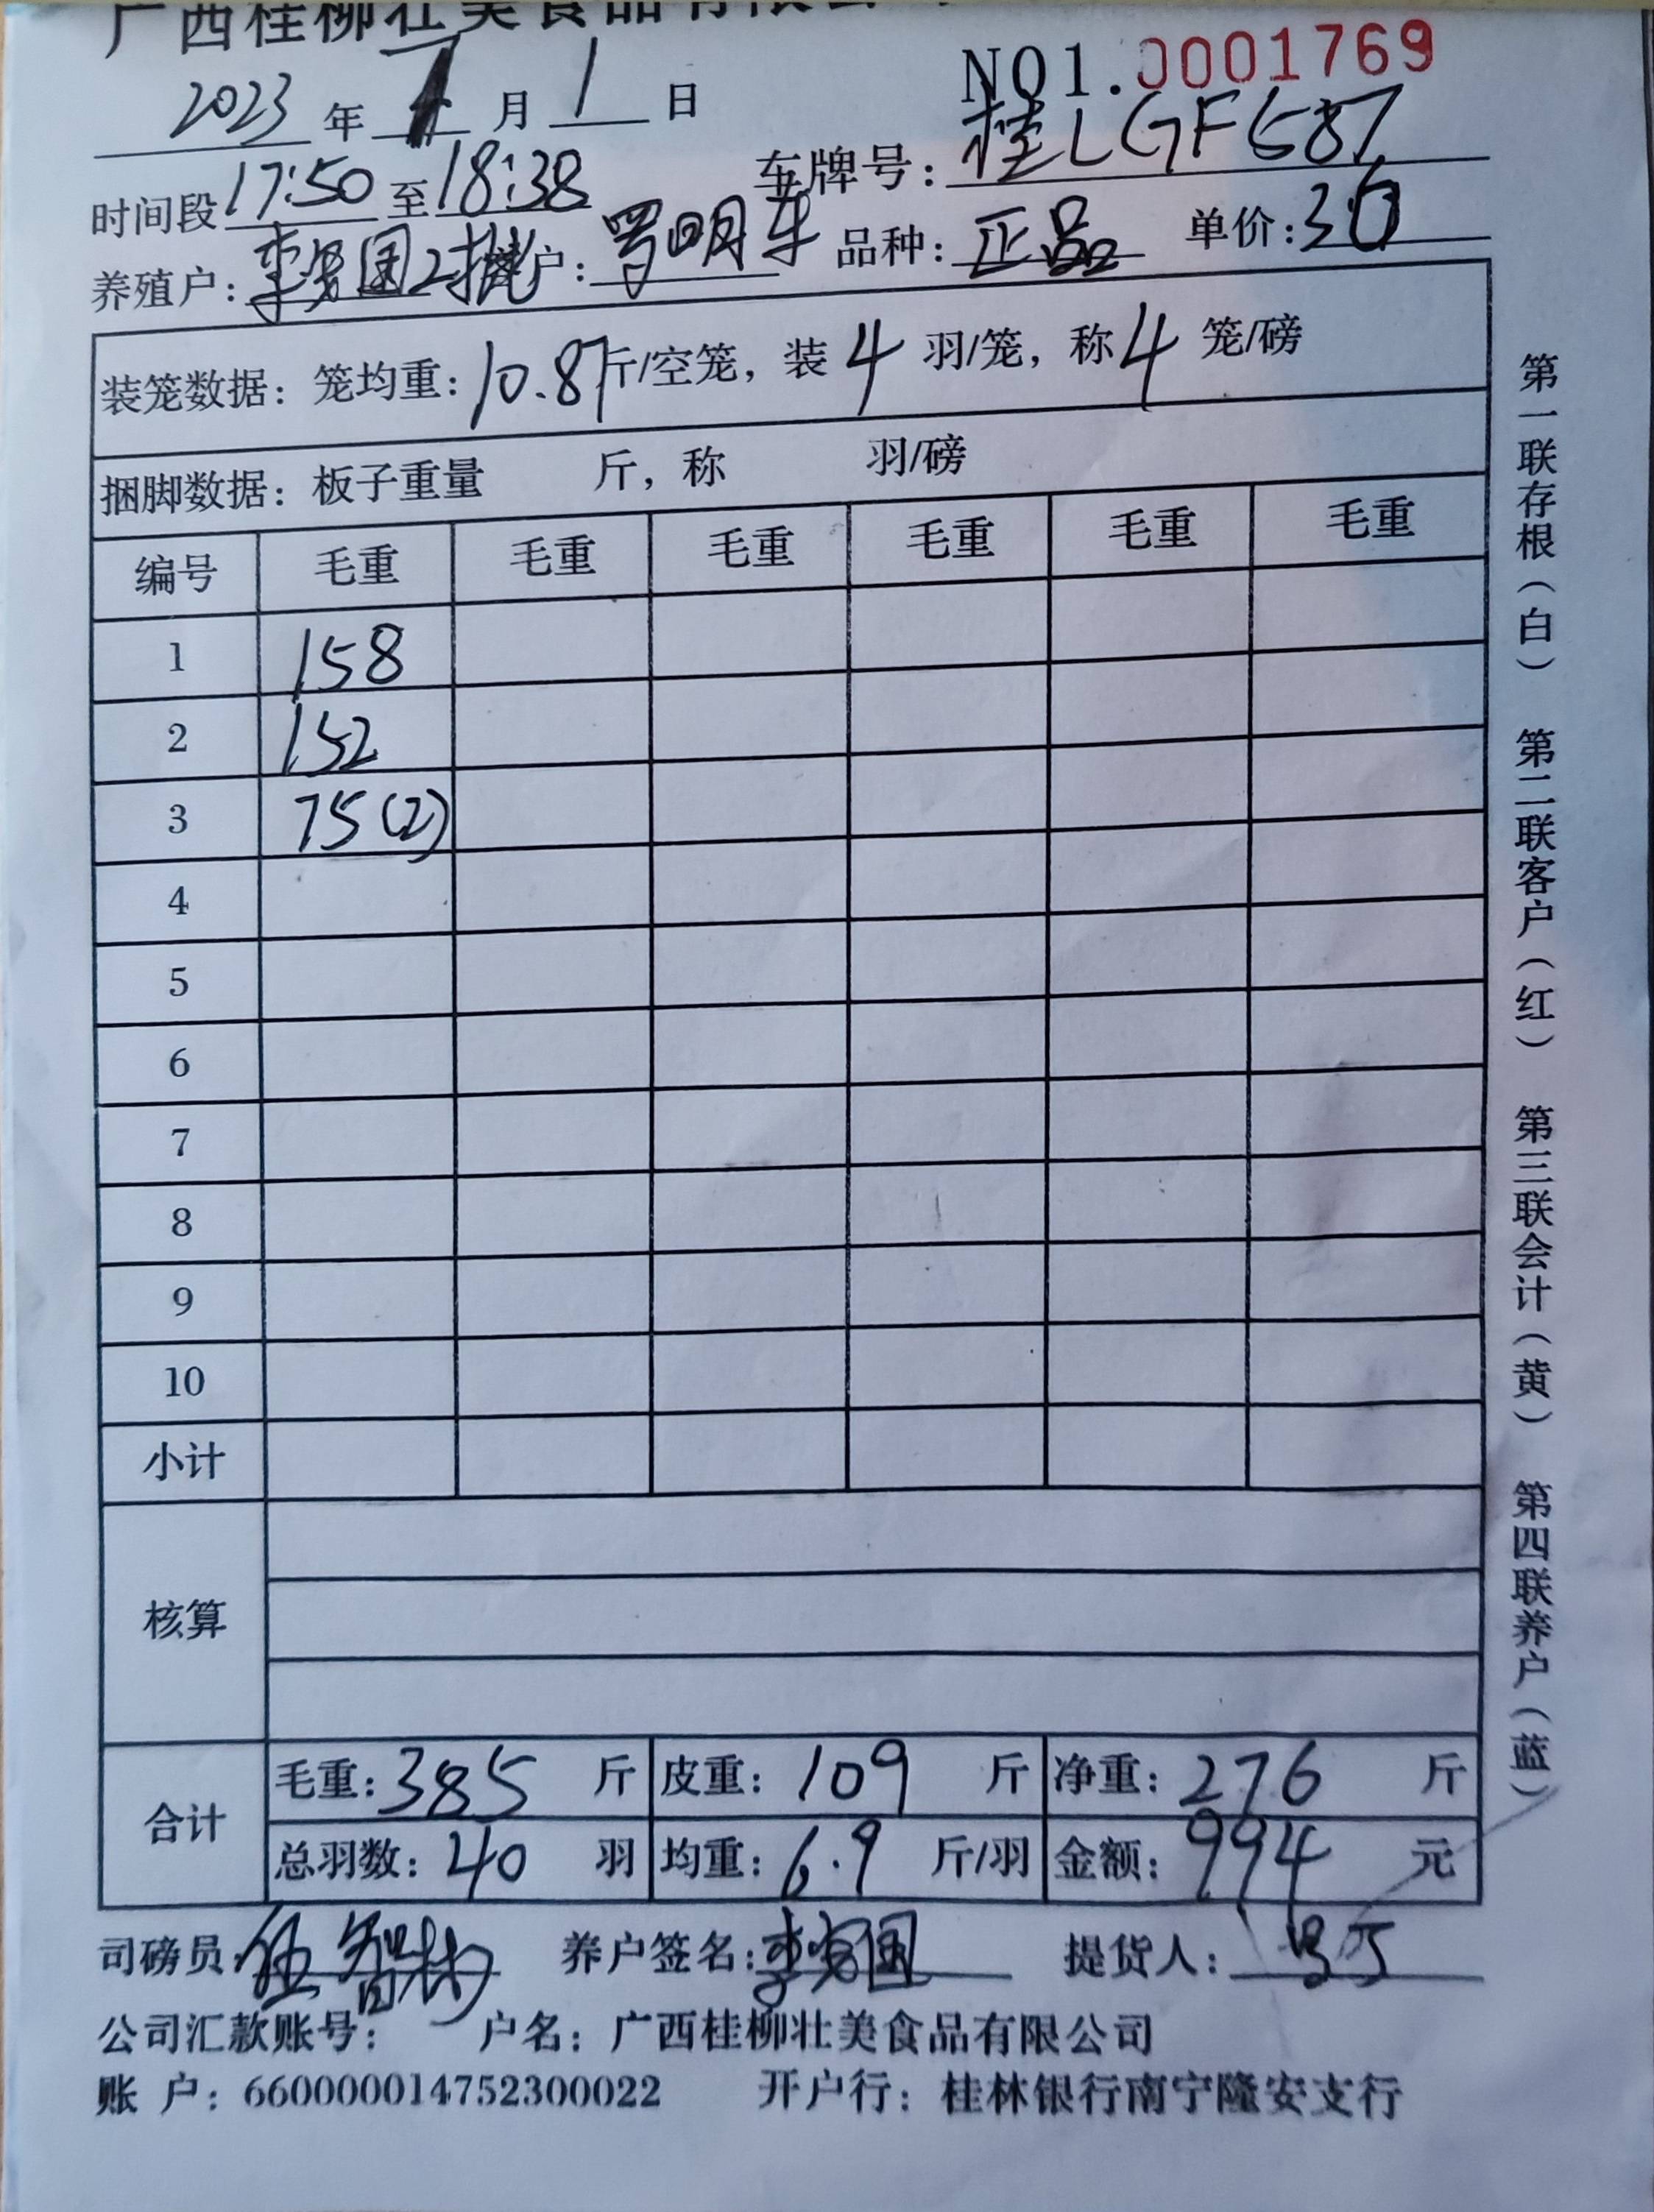 广西桂柳壮美食品有限公
NO1.0001769
2023 年 月 1 日
时间段 17:50 至 18:38 车牌号: 桂LGF587
养殖户: 李 国2批 户: 罗明车 品种: 正品 单价: 3.6
装笼数据: 笼均重: 10.87斤/空笼, 装 4 羽/笼, 称 4 笼/磅
捆脚数据: 板子重量 斤, 称 羽/磅
编号 毛重 毛重 毛重 毛重 毛重 毛重
1 158
2 152
3 75(2)
4
5
6
7
8
9
10
小计
核算
合计
毛重: 385 斤 皮重: 109 斤 净重: 276 斤
总羽数: 40 羽 均重: 6.9 斤/羽 金额: 994 元
司磅员: 伍智彬 养户签名: 李 国 提货人:
公司汇款账号: 户名: 广西桂柳壮美食品有限公司
账 户: 660000014752300022 开户行: 桂林银行南宁隆安支行
第一联存根(白) 第二联客户(红) 第三联会计(黄) 第四联养户(蓝)